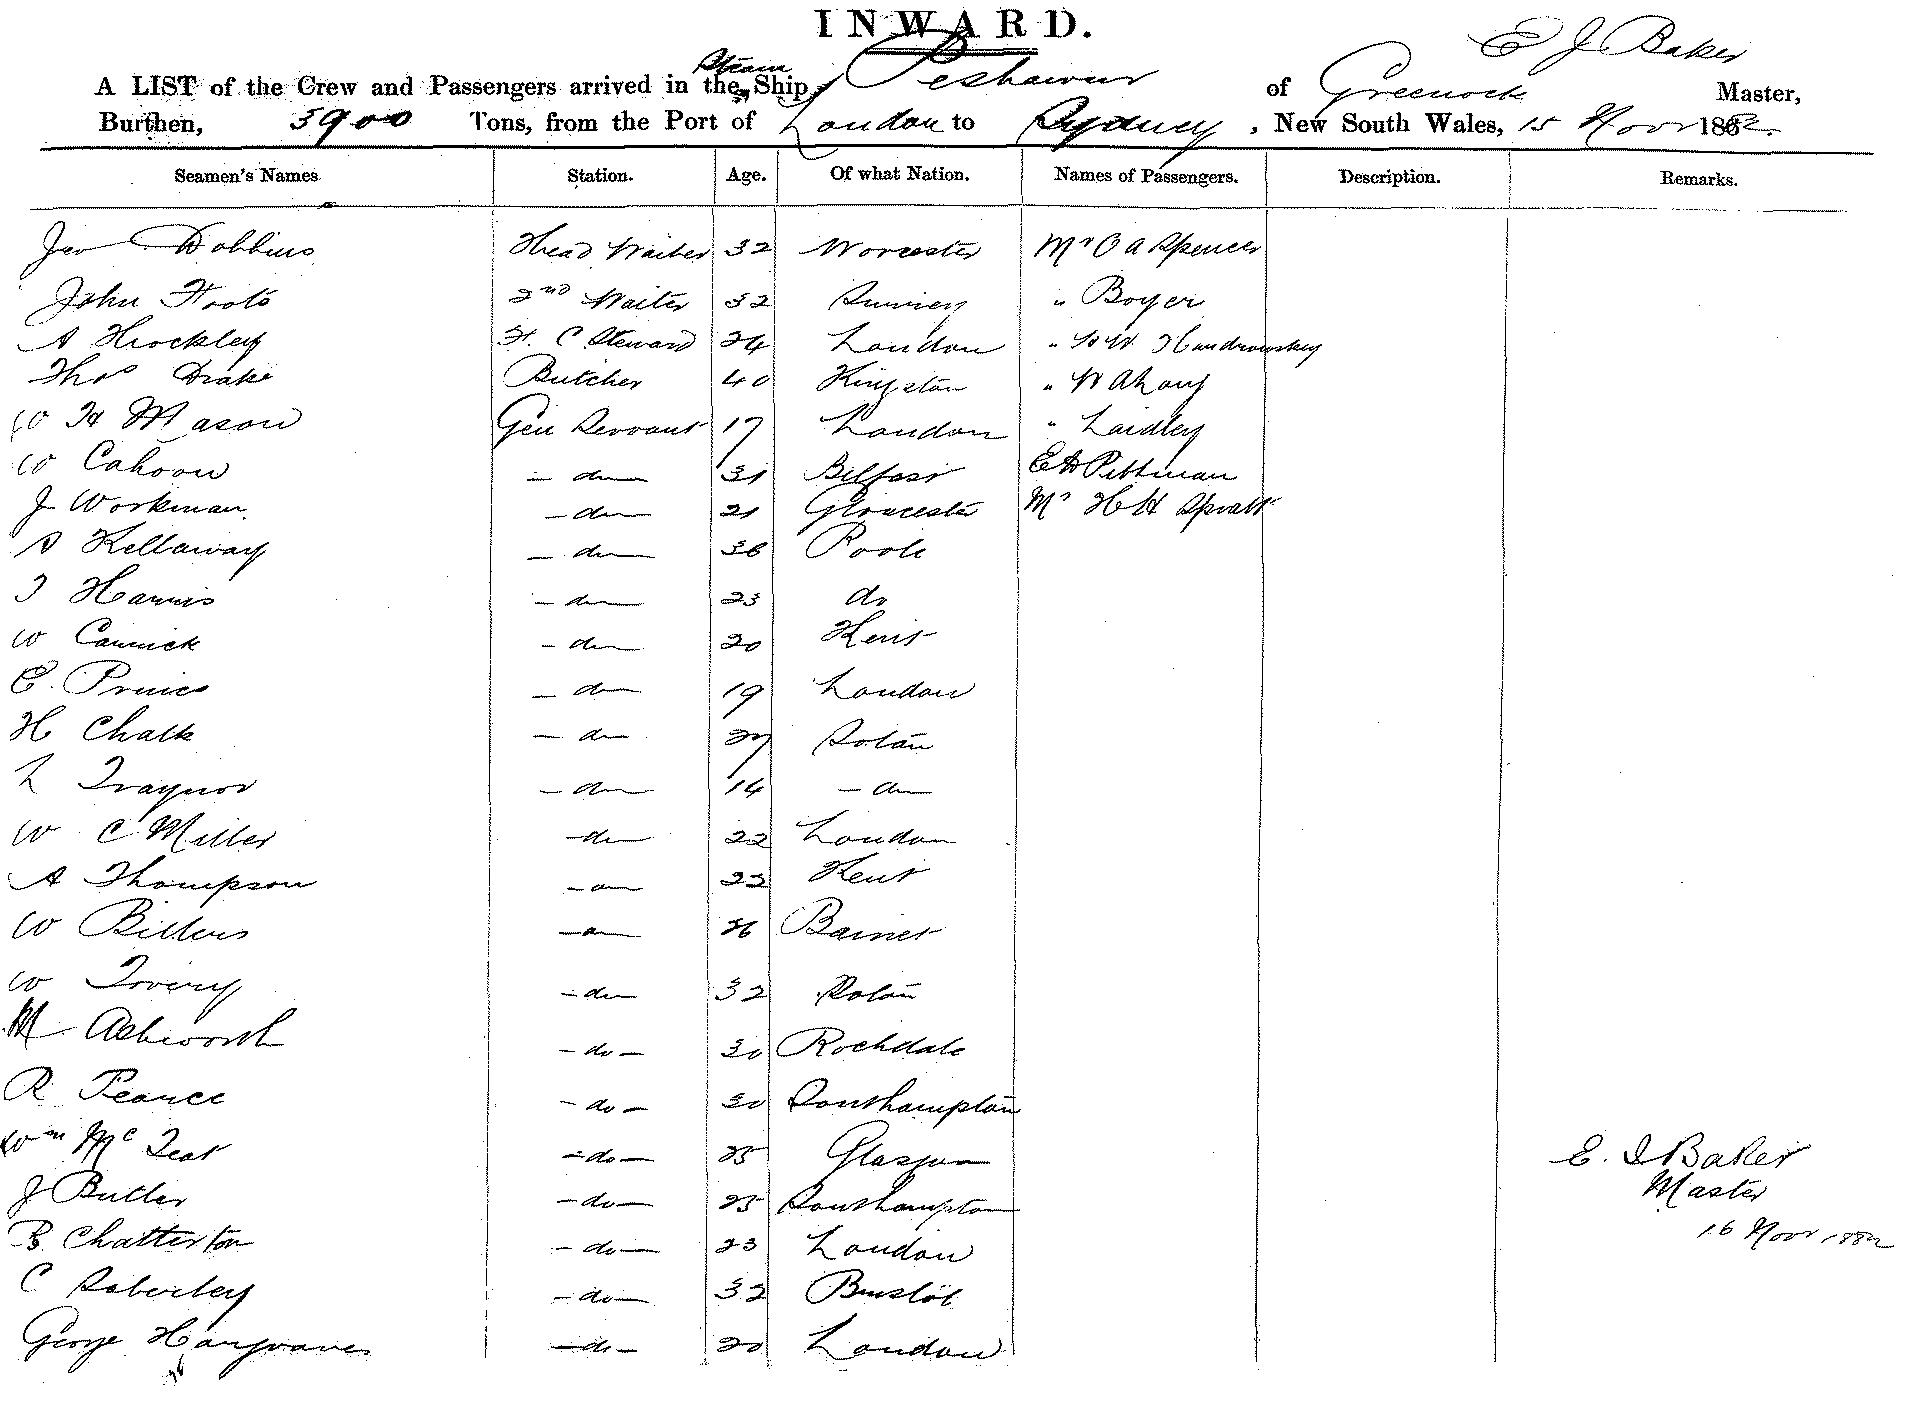 INWARD.
E J Baker
A LIST of the Crew and Passengers arrived in the Steam Ship Peshawur of Greenock Master,
Burthen, 3900 Tons, from the Port of London to Sydney, New South Wales, 15 Novr 1882.
Seamen's Names Station. Age. Of what Nation. Names of Passengers. Description. Remarks.
Dobbins Head Waiter 32 Worcester Mr O A Spencer
John 2nd Waiter 32 " Boyer
A Hockley Steward 24 London "
Thos Drake Butcher 40 Kingston "
W H Mason Gen Servant 17 London " Laidley
W Cahoon - do 31 Belfast Pittman
J Workman - do 21 Gloucester Mr H H Spratt
A Kellaway - do 36 Poole
J Harris - do 23 do
W Carrick - do 20 Kent
E. Prince - do 19 London
H Chalk - do 27 Soton
L Traynor - do 14 - do
W C Miller - do 22 London
A Thompson - do 22 Kent
W - do 26 Barnet
W - do 32 Soton
M Ashworth - do - 30 Rochdale
R Pearce - do - 30 Southampton
Wm Mc - do - 25 Glasgow
J Butler - do - 25 Southampton
B Chatterton - do - 23 London
C - do - 32 Bristol
George Hargraves - do - 20 London
E. J Baker
Master
16 Novr 1882